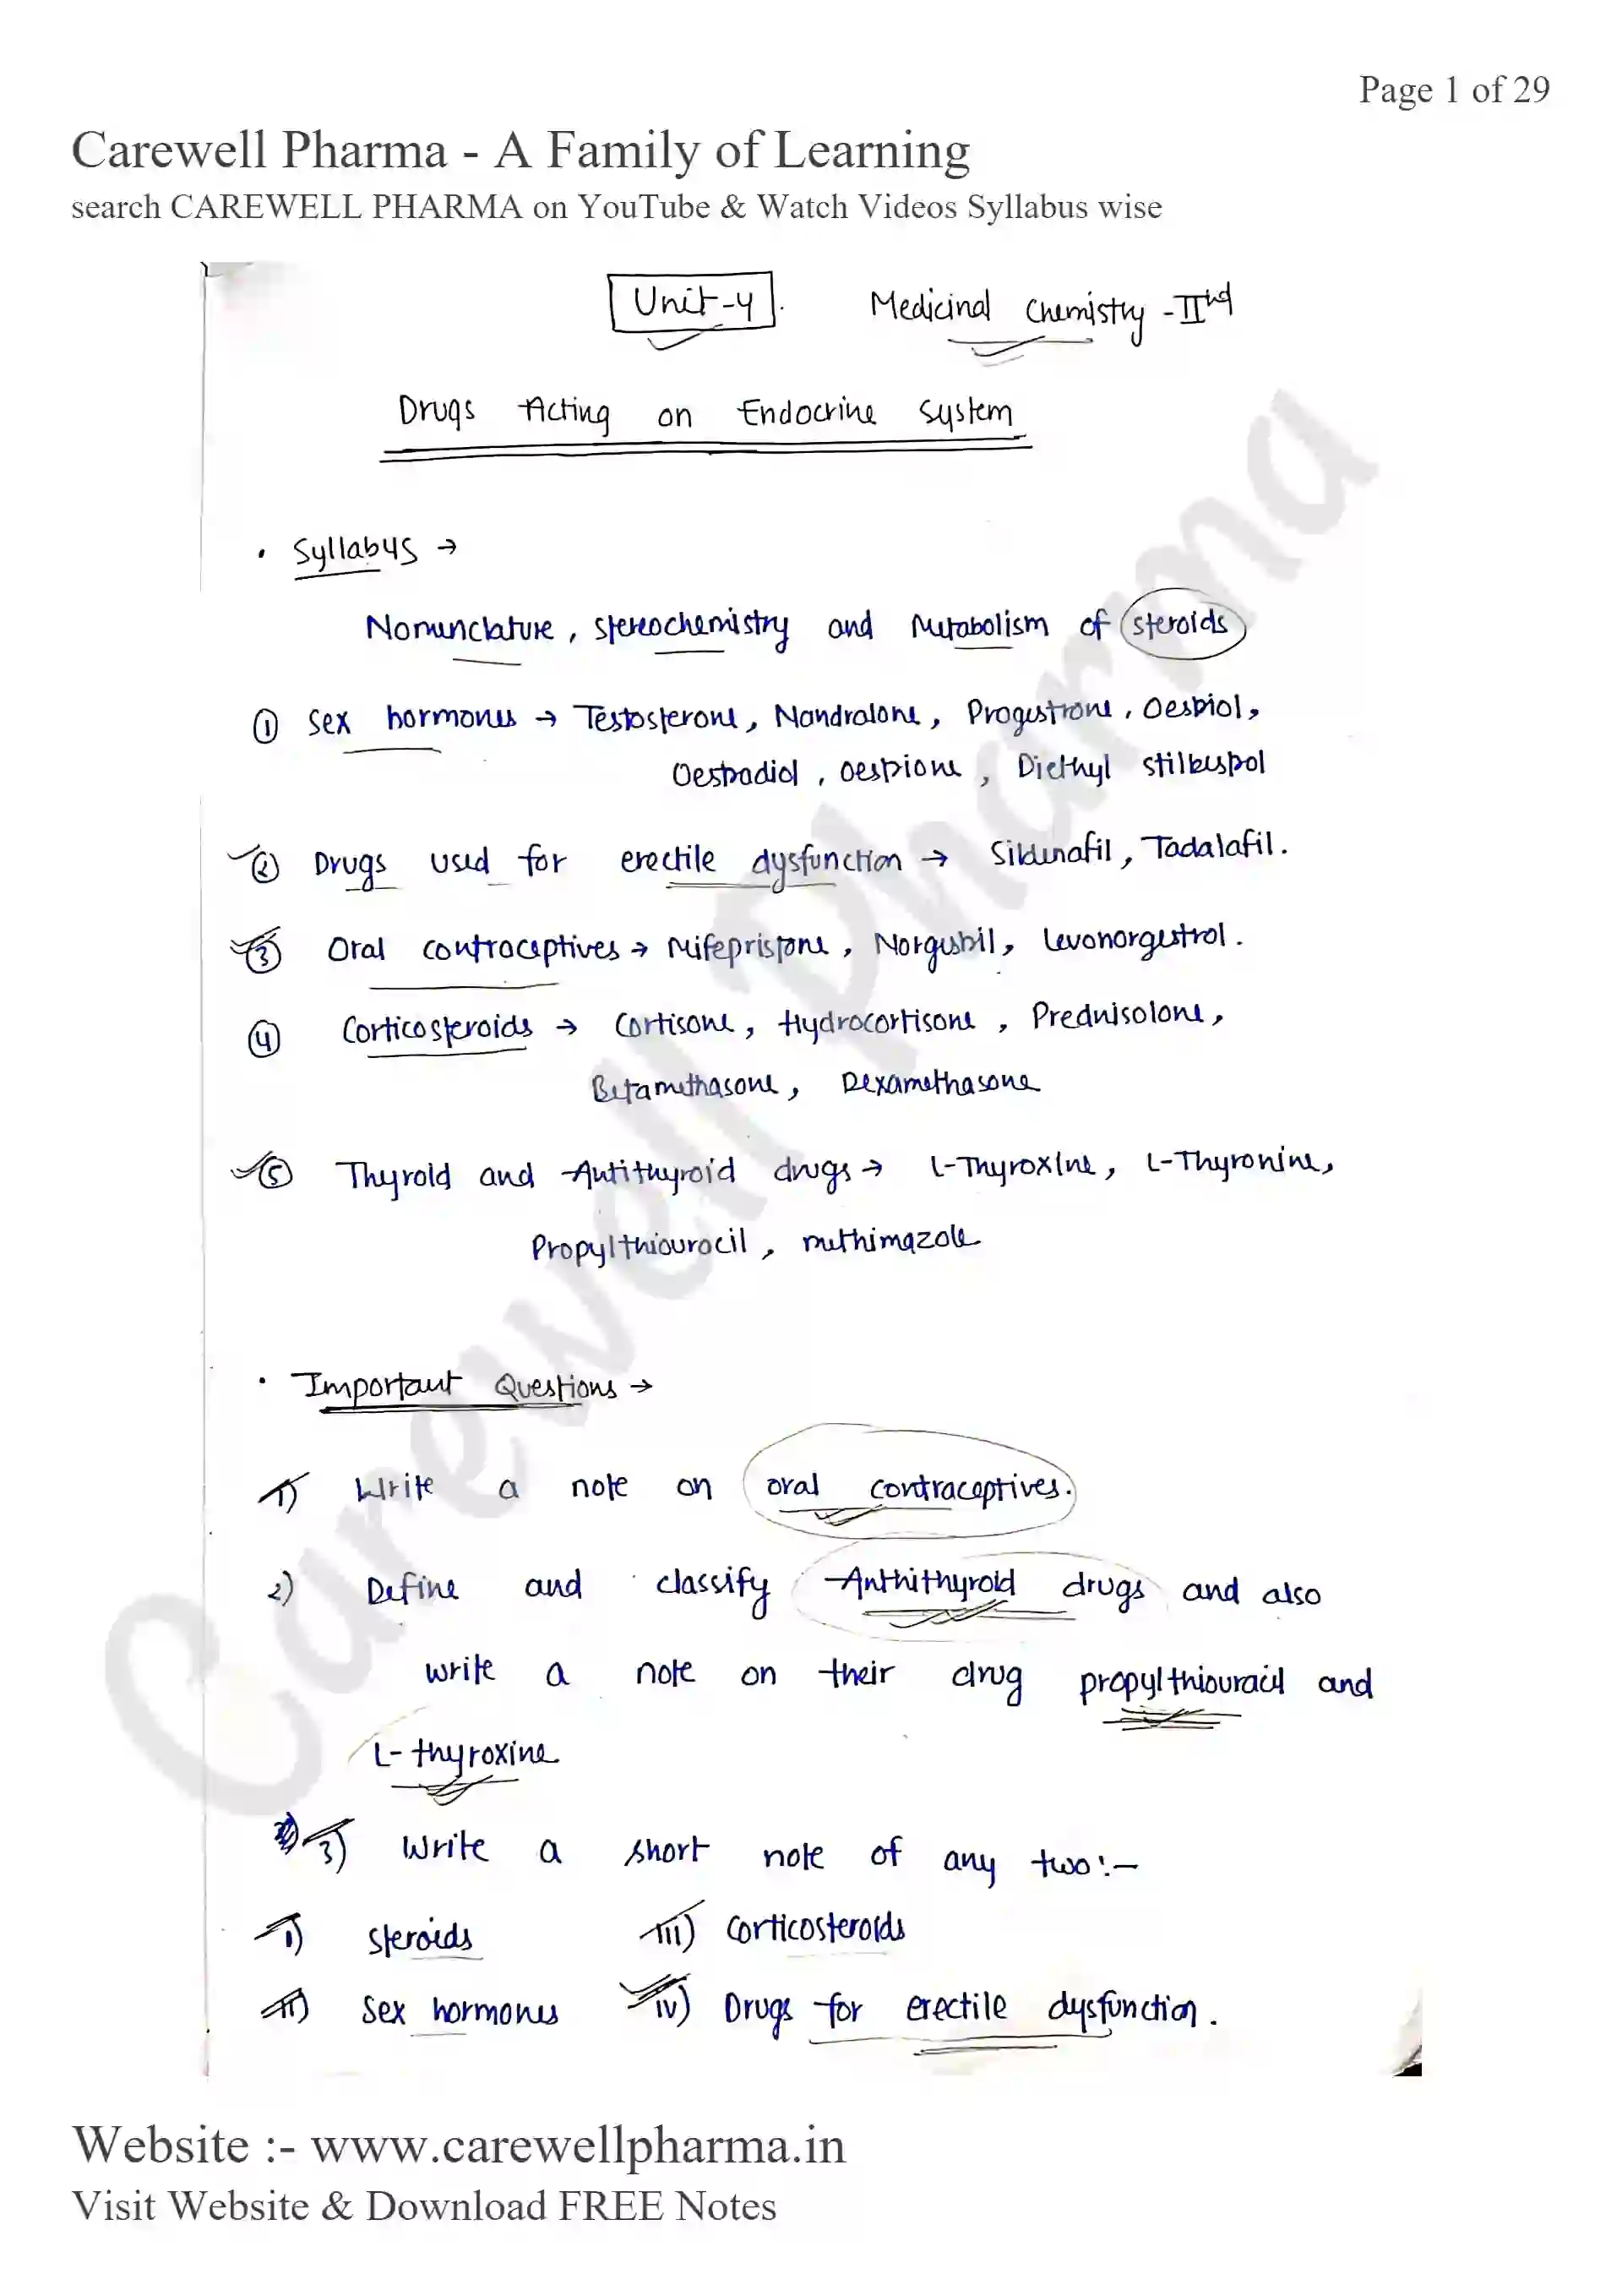 Page 1 of 29
Carewell Pharma - A Family of Learning
search CAREWELL PHARMA on YouTube & Watch Videos Syllabus wise
Unit-4. Medicinal Chemistry -IInd
Drugs Acting on Endocrine System
• Syllabus →
Nomenclature, stereochemistry and Metabolism of steroids
① Sex hormones → Testosterone, Nandralone, Progestrone, Oestriol,
Oestradiol, Oestrione, Diethyl stilbestrol
② Drugs used for erectile dysfunction → Sildenafil, Tadalafil.
③ Oral contraceptives → Mifepristone, Norgestril, Levonorgestrol.
④ Corticosteroids → Cortisone, Hydrocortisone, Prednisolone,
Betamethasone, Dexamethasone
⑤ Thyroid and Antithyroid drugs → L-Thyroxine, L-Thyronine,
Propylthiouracil, methimazole
• Important Questions →
1) Write a note on oral contraceptives.
2) Define and classify Anthithyroid drugs and also
write a note on their drug propylthiouracil and
L-thyroxine
3) Write a short note of any two:-
i) steroids iii) Corticosteroids
ii) Sex hormones iv) Drugs for erectile dysfunction.
Carewell Pharma
Website :- www.carewellpharma.in
Visit Website & Download FREE Notes